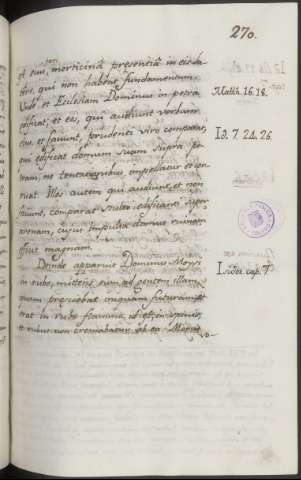 270.
A tuis, morticina presentia in eisdem
libris, qui non habent fundamentum.
Unde et Ecclesiam Dominus in petra
edificat; et eos, qui audiunt verbum
eius, et faciunt, prudenti viro comparat,
qui edificat domum suam supra pe-
tram, ne tentationibus impellatur et cor-
ruat. Illos autem qui audiunt, et non
faciunt, comparat stulto edificanti super
arenam, cujus impulsa domus ruinam
efficit magnam.
Deinde apparuit Dominus Moysi
in rubo, mittens eum ad gentem illam,
quam presciebat iniquam futuram.
erat in rubo flamma, id est, in spinis,
et rubus non cremabatur.
Matth. 16. 18.
Id. 7. 24. 26.
Isidor. cap. 7.